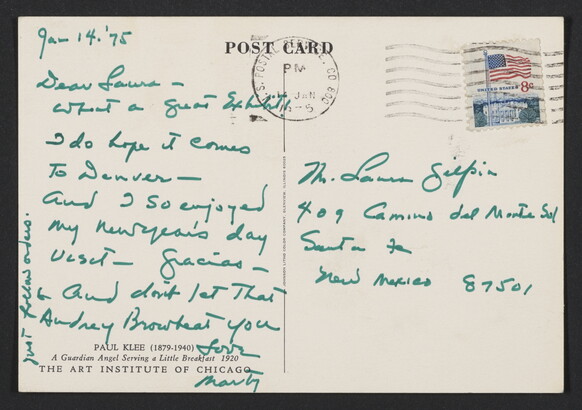 POST CARD
Jan 14.'75
Dear Laura —
What a great Exhibit
I do hope it comes
To Denver —
And I so enjoyed
My New Year's day
Visit — Gracias —
& And don't let that
Audrey Browbeat you
Love
Marty
just follow orders.
PAUL KLEE (1879-1940)
A Guardian Angel Serving a Little Breakfast 1920
THE ART INSTITUTE OF CHICAGO
U.S. POSTAL SERVICE, CO 800
PM
14 JAN
UNITED STATES 8c
Ms. Laura Gilpin
409 Camino del Monte Sol
Santa Fe
New Mexico 87501